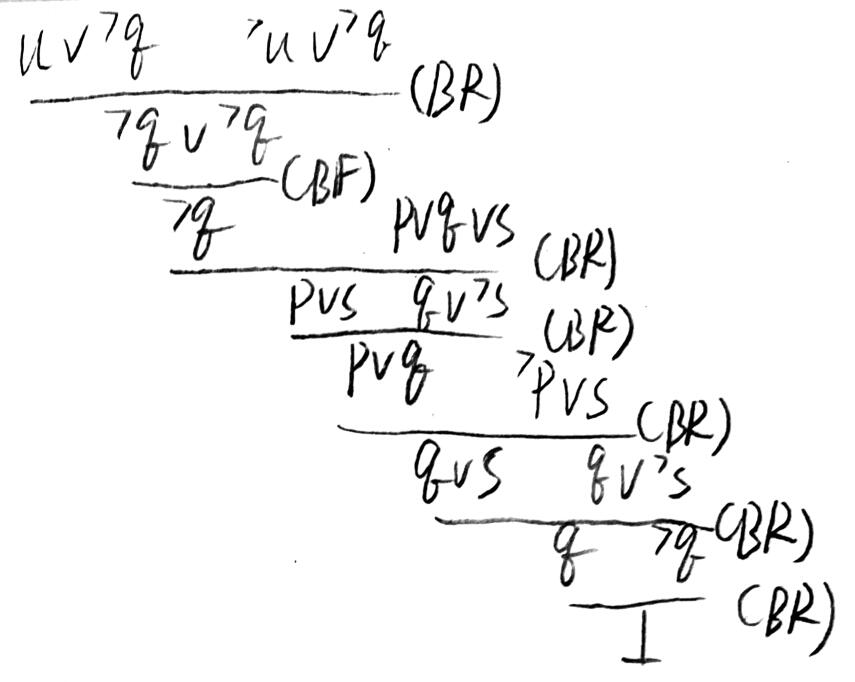 u∨¬q ¬u∨¬q
(BR)
¬q∨¬q
(BF)
¬q p∨q∨s
(BR)
p∨s q∨¬s
(BR)
p∨q ¬p∨s
(BR)
q∨s q∨¬s
(BR)
q ¬q
(BR)
⊥